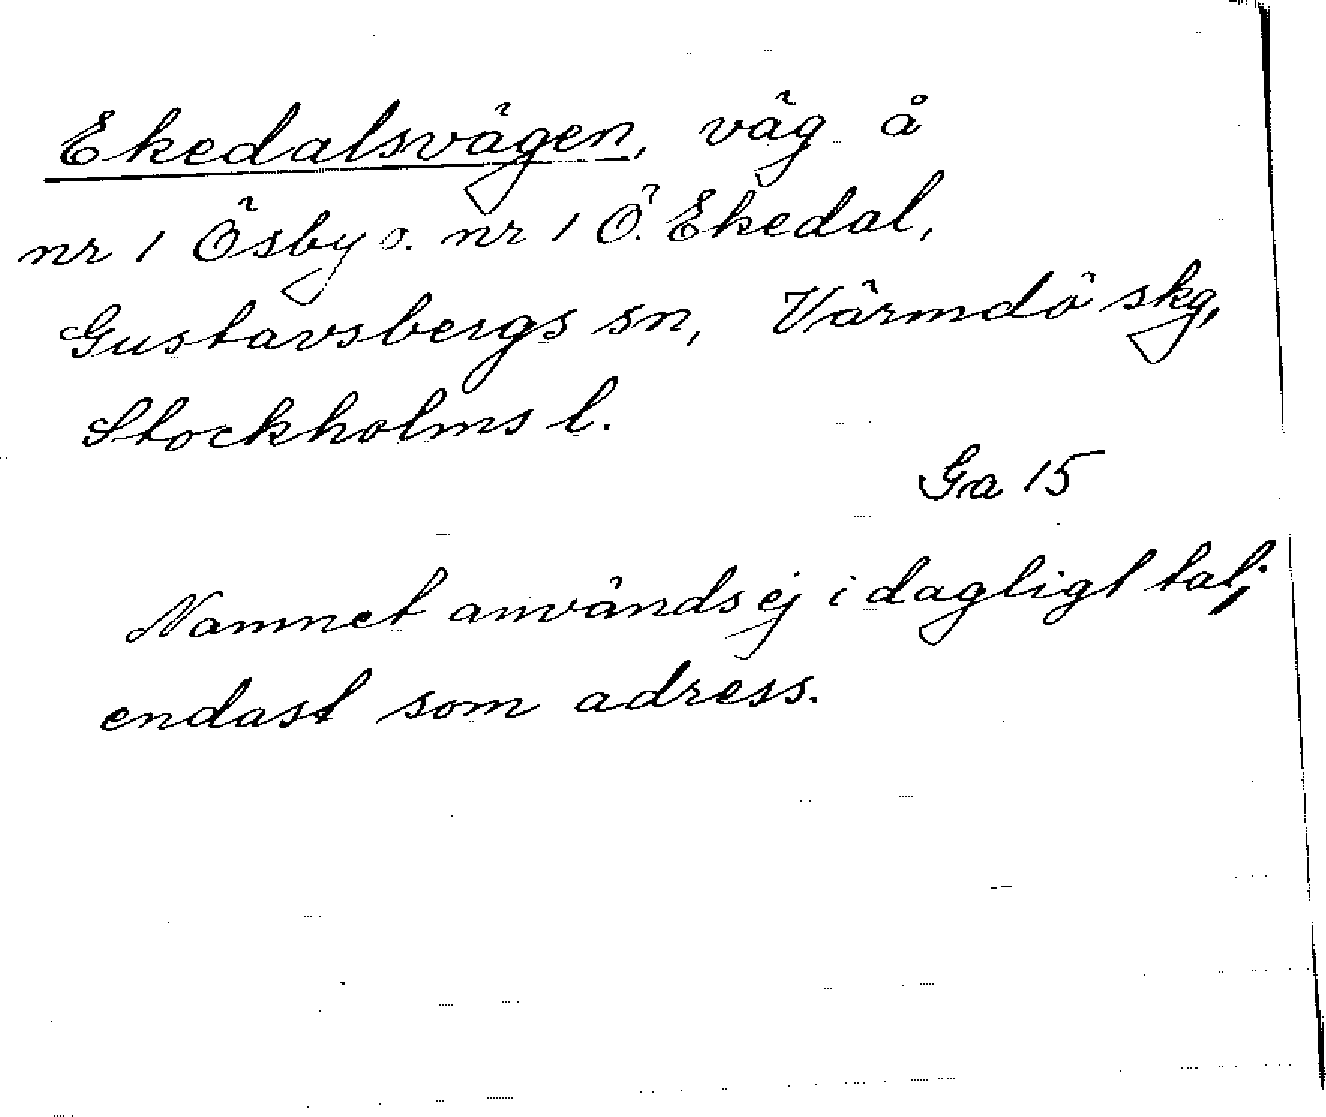 Ekedalsvägen, väg å
nr 1 Ösby o. nr 1 Ö. Ekedal,
Gustavsbergs sn, Värmdö skg,
Stockholms l.
Ga 15
Namnet används ej i dagligt tal;
endast som adress.